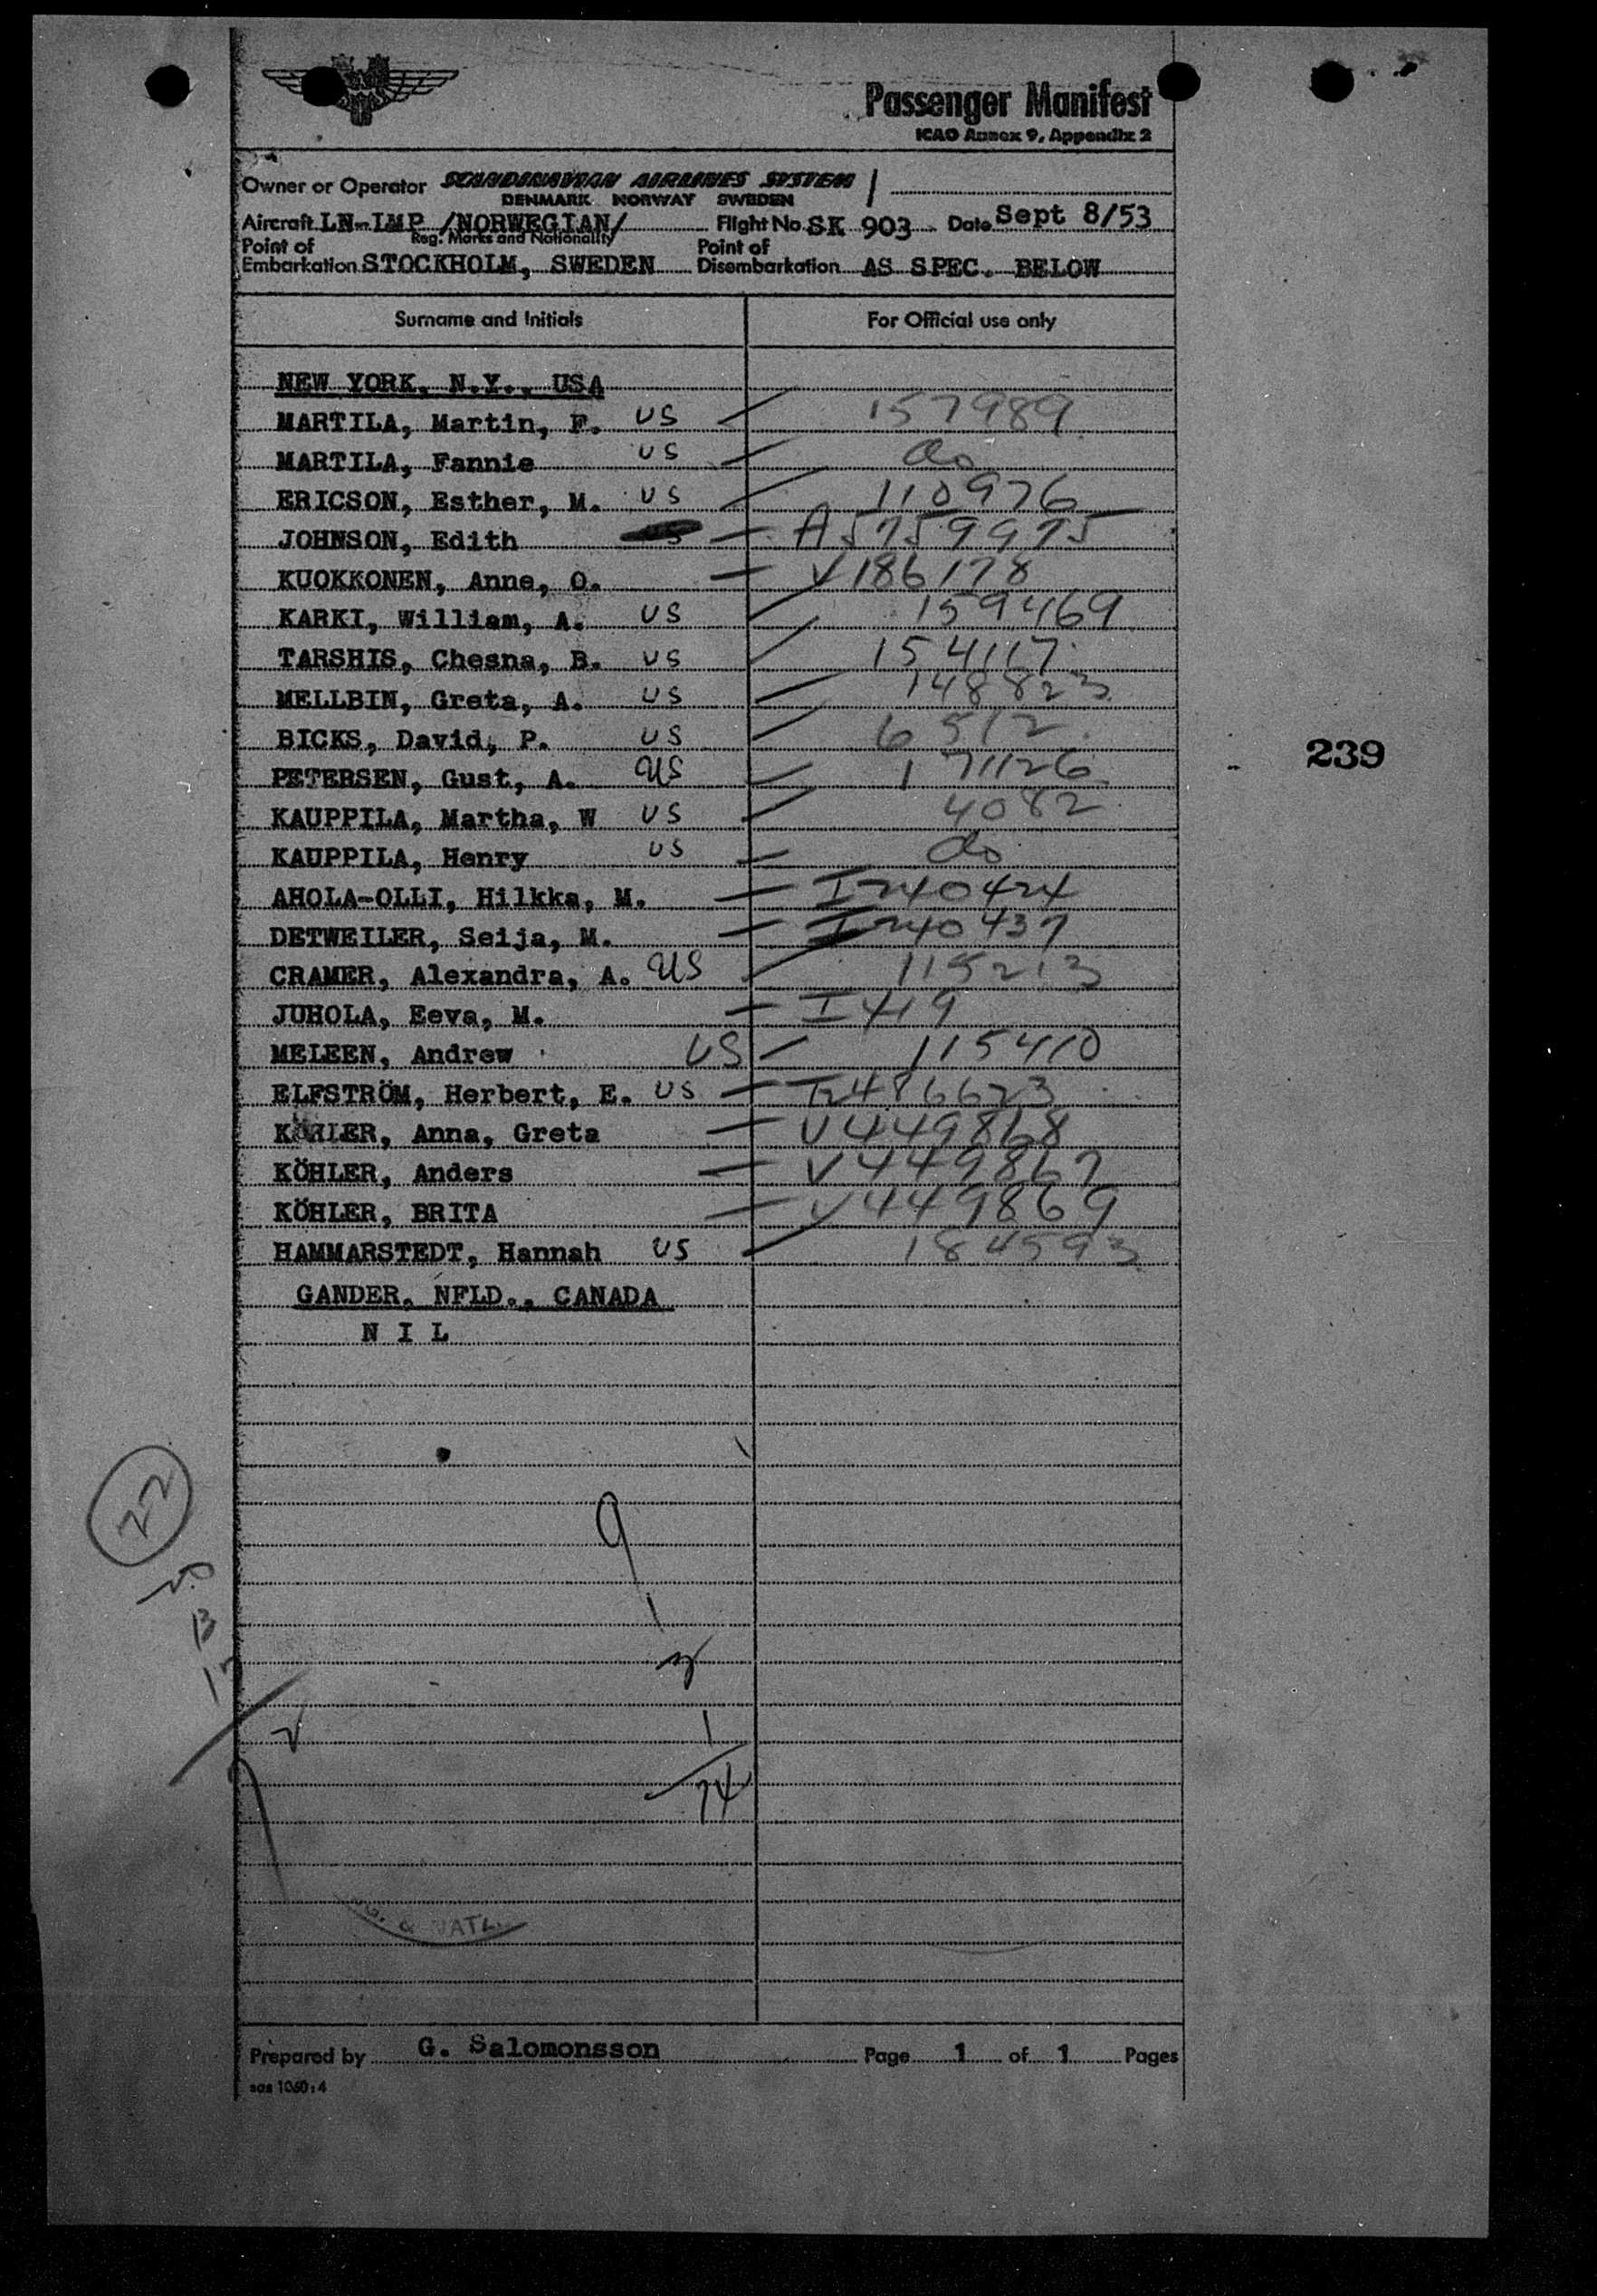 Passenger Manifest
ICAO Annex 9, Appendix 2
Owner or Operator SCANDINAVIAN AIRLINES SYSTEM
DENMARK NORWAY SWEDEN
Aircraft LN-IMP /NORWEGIAN/ Flight No. SK 903 Date Sept 8/53
Reg. Marks and Nationality
Point of Embarkation STOCKHOLM, SWEDEN Point of Disembarkation AS SPEC. BELOW
Surname and Initials For Official use only
NEW YORK, N.Y., USA
MARTILA, Martin, F. US 157989
MARTILA, Fannie US do
ERICSON, Esther, M. US 110976
JOHNSON, Edith A5759975
KUOKKONEN, Anne, O. V186178
KARKI, William, A. US 159469
TARSHIS, Chesna, B. US 154117
MELLBIN, Greta, A. US 148823
BICKS, David, P. US 6512
PETERSEN, Gust, A. US 171126
KAUPPILA, Martha, W US 4082
KAUPPILA, Henry US do
AHOLA-OLLI, Hilkka, M. I240424
DETWEILER, Seija, M. I240437
CRAMER, Alexandra, A. US 115213
JUHOLA, Eeva, M. I419
MELEEN, Andrew US 115410
ELFSTRÖM, Herbert, E. US 2486623
KÖHLER, Anna, Greta V449868
KÖHLER, Anders V449867
KÖHLER, BRITA V449869
HAMMARSTEDT, Hannah US 184593
GANDER, NFLD., CANADA
N I L
239
22
9
1
13
1
& NATZ.
Prepared by G. Salomonsson Page 1 of 1 Pages
sas 1060:4